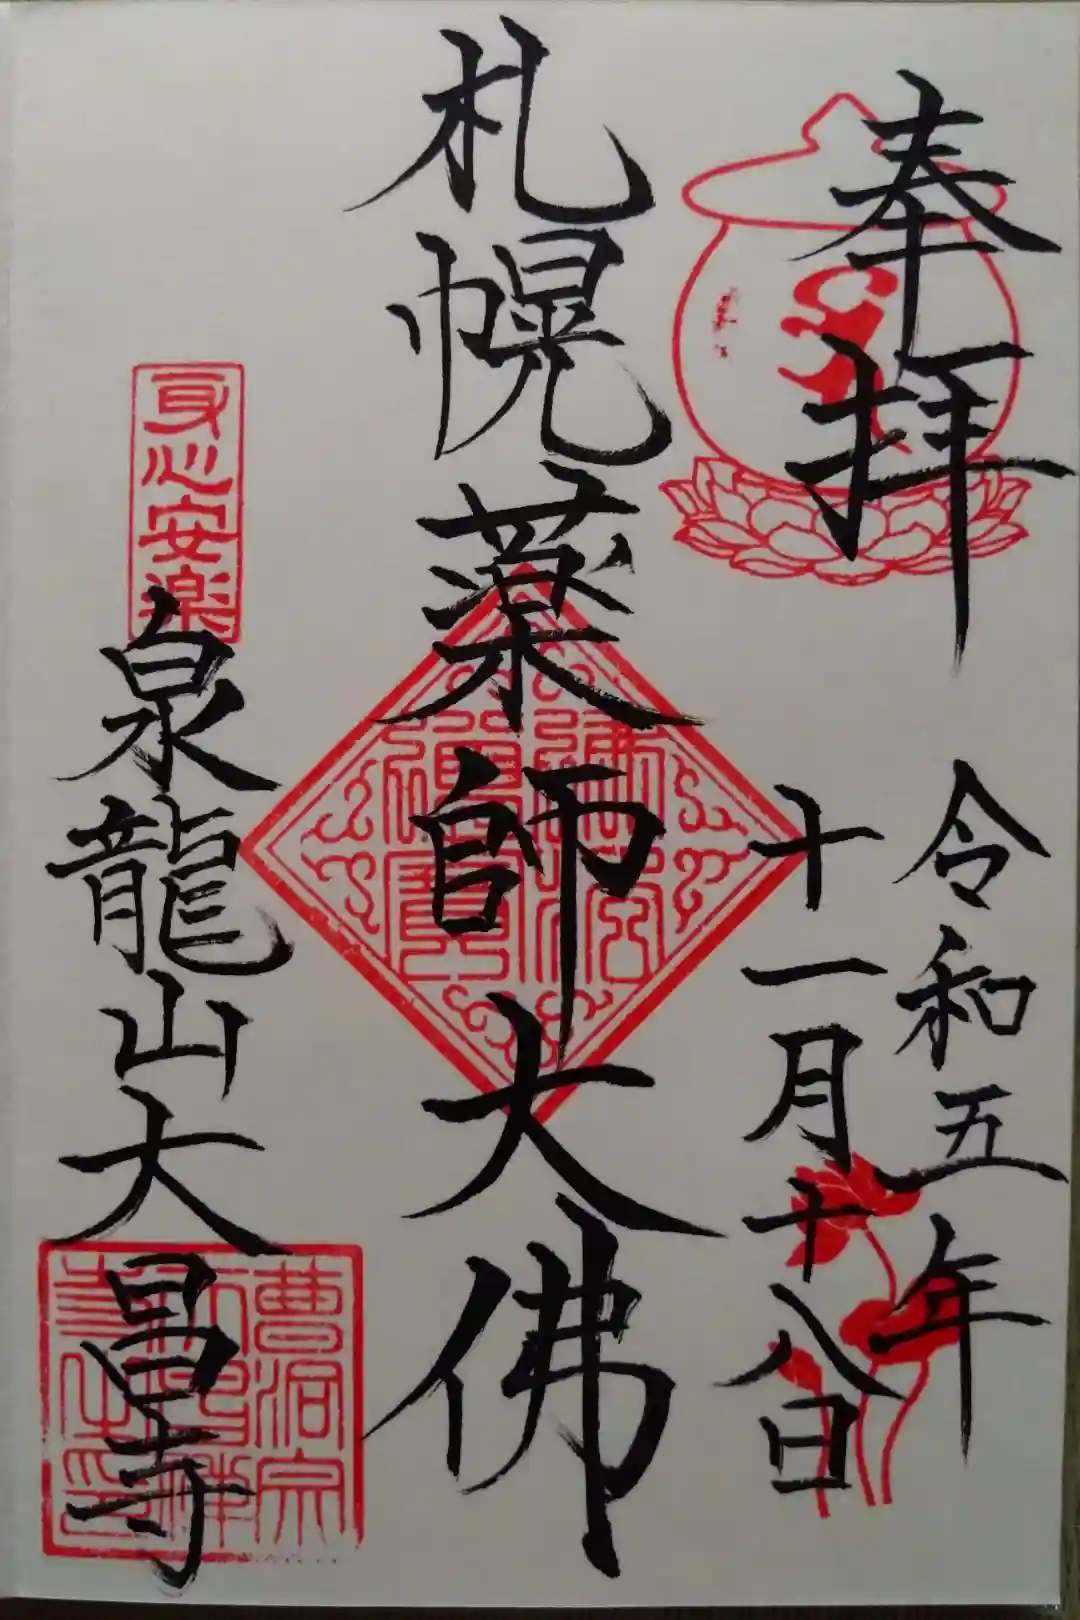 奉拝
令和五年
十一月十八日
札幌薬師大佛
佛法
僧寳
身心安楽
泉龍山大昌寺
曹洞宗
大昌禅
寺之印